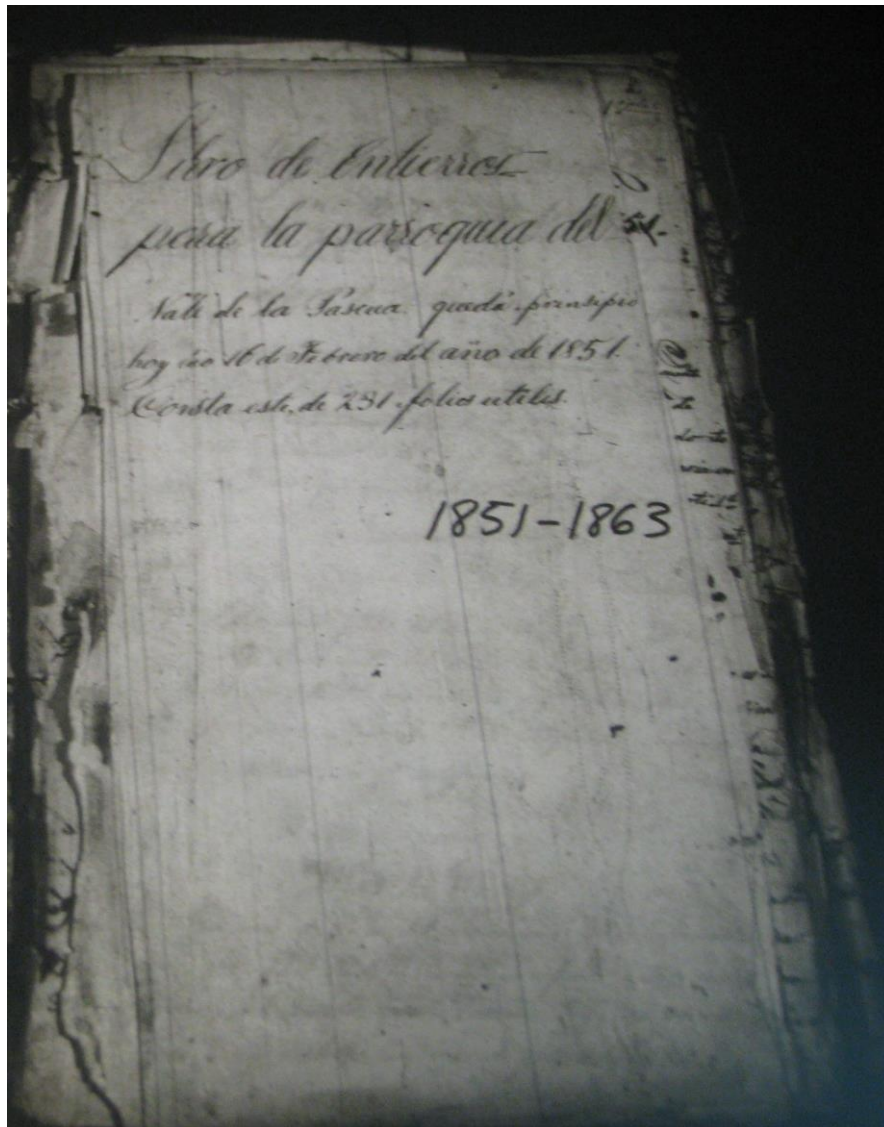 Libro de Entierros
para la parroquia del
Valle de la Pascua. queda prinsipio
hoy dia 16 de Febrero del año de 1851.
Consta este, de 231 folios utiles.
1851-1863
51.